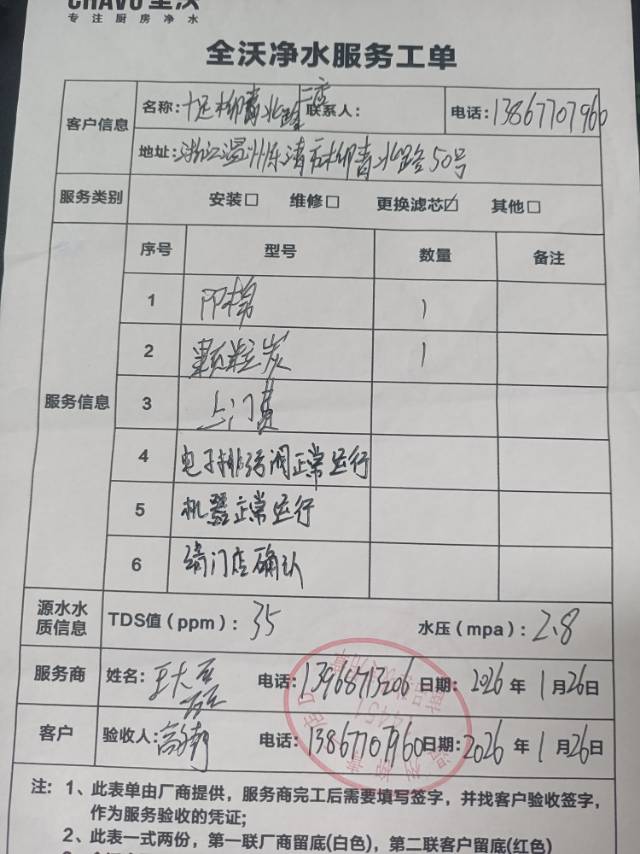 CHAVO 全沃
专注厨房净水
全沃净水服务工单
客户信息
名称: 柳青北路二店 联系人: 电话: 13867707960
地址: 浙江温州乐清市柳青北路50号
服务类别 安装□ 维修□ 更换滤芯☑ 其他□
服务信息
序号 型号 数量 备注
1 PP棉 1
2 颗粒炭 1
3 上门费
4 电子排污阀正常运行
5 机器正常运行
6 请门店确认
源水水质信息 TDS值（ppm）: 35 水压（mpa）: 2.8
服务商 姓名: 电话: 13968713206 日期: 2026 年 1月26日
客户 验收人: 电话: 13867707960 日期: 2026 年 1月26日
注: 1、此表单由厂商提供，服务商完工后需要填写签字，并找客户验收签字，
作为服务验收的凭证;
2、此表一式两份，第一联厂商留底(白色)，第二联客户留底(红色)